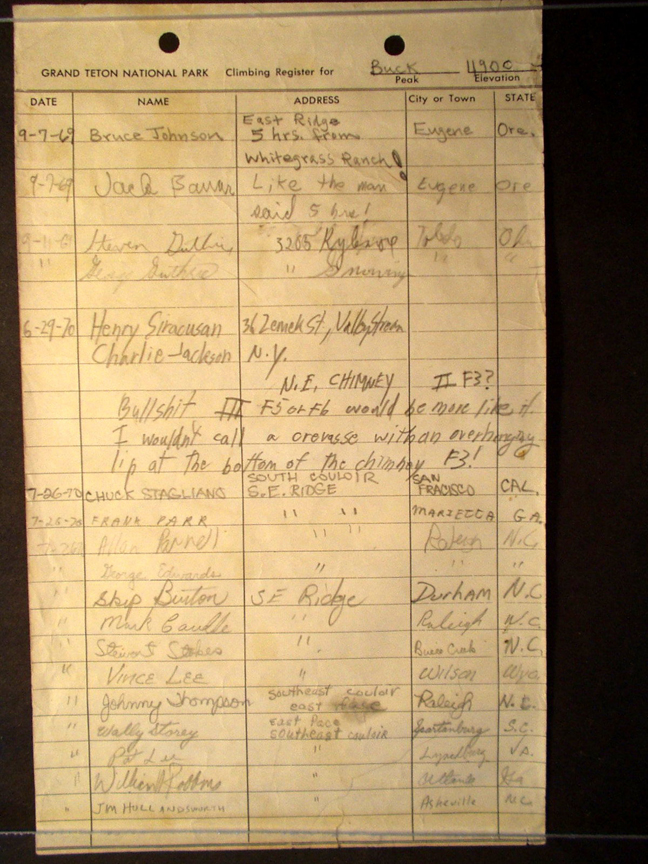 GRAND TETON NATIONAL PARK Climbing Register for Buck 11900
Peak Elevation
DATE NAME ADDRESS City or Town STATE
East Ridge
9-7-69 Bruce Johnson 5 hrs. from Eugene Ore.
Whitegrass Ranch!
9-7-69 Jack Like the man Eugene Ore
said 5 hrs!
9-11-69 Steven 3265 Toledo Oh
" " George " "
6-29-70 Henry Siracusan 36 Zemek St., Valley Stream
Charlie Jackson N.Y.
N.E. CHIMNEY II F3?
Bullshit III F5 or F6 would be more like it.
I wouldn't call a crevasse with an overhanging
lip at the bottom of the chimney F3!
SOUTH COULOIR SAN
7-26-70 CHUCK STAGLIANO S.E. RIDGE FRACISCO CAL.
7-25-70 FRANK PARR " " MARIETTA GA.
Allan Parnell " " Raleigh N.C.
" George Edwards " " "
" Skip Burton SE Ridge Durham N.C
" Mark " Raleigh N.C.
" Stewart Stokes " Buies Creek N.C.
" VINCE LEE " Wilson Wyo.
" Johnny Thompson Southeast couloir Raleigh N.C.
east face
East Face
" Wally Storey Southeast couloir Spartanburg S.C.
" Pat Lee " Lynchburg VA.
" William Robbins " Atlanta Ga
" JIM HOLLANDSWORTH " Asheville N.C.